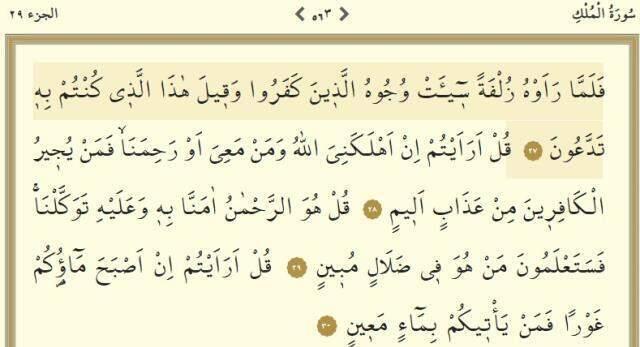 سُورَةُ الْمُلْكِ ٥٦٣ الجزء ٢٩
فَلَمَّا رَاَوْهُ زُلْفَةً سٖٓيـَٔتْ وُجُوهُ الَّذٖينَ كَفَرُوا وَقٖيلَ هٰذَا الَّذٖى كُنْتُمْ بِهٖ
تَدَّعُونَ ٢٧ قُلْ اَرَاَيْتُمْ اِنْ اَهْلَكَنِىَ اللّٰهُ وَمَنْ مَعِىَ اَوْ رَحِمَنَاۙ فَمَنْ يُجٖيرُ
الْكَافِرٖينَ مِنْ عَذَابٍ اَلٖيمٍ ٢٨ قُلْ هُوَ الرَّحْمٰنُ اٰمَنَّا بِهٖ وَعَلَيْهِ تَوَكَّلْنَاۚ
فَسَتَعْلَمُونَ مَنْ هُوَ فٖى ضَلَالٍ مُبٖينٍ ٢٩ قُلْ اَرَاَيْتُمْ اِنْ اَصْبَحَ مَٓاؤُ۬كُمْ
غَوْرًا فَمَنْ يَأْتٖيكُمْ بِمَٓاءٍ مَعٖينٍ ٣٠